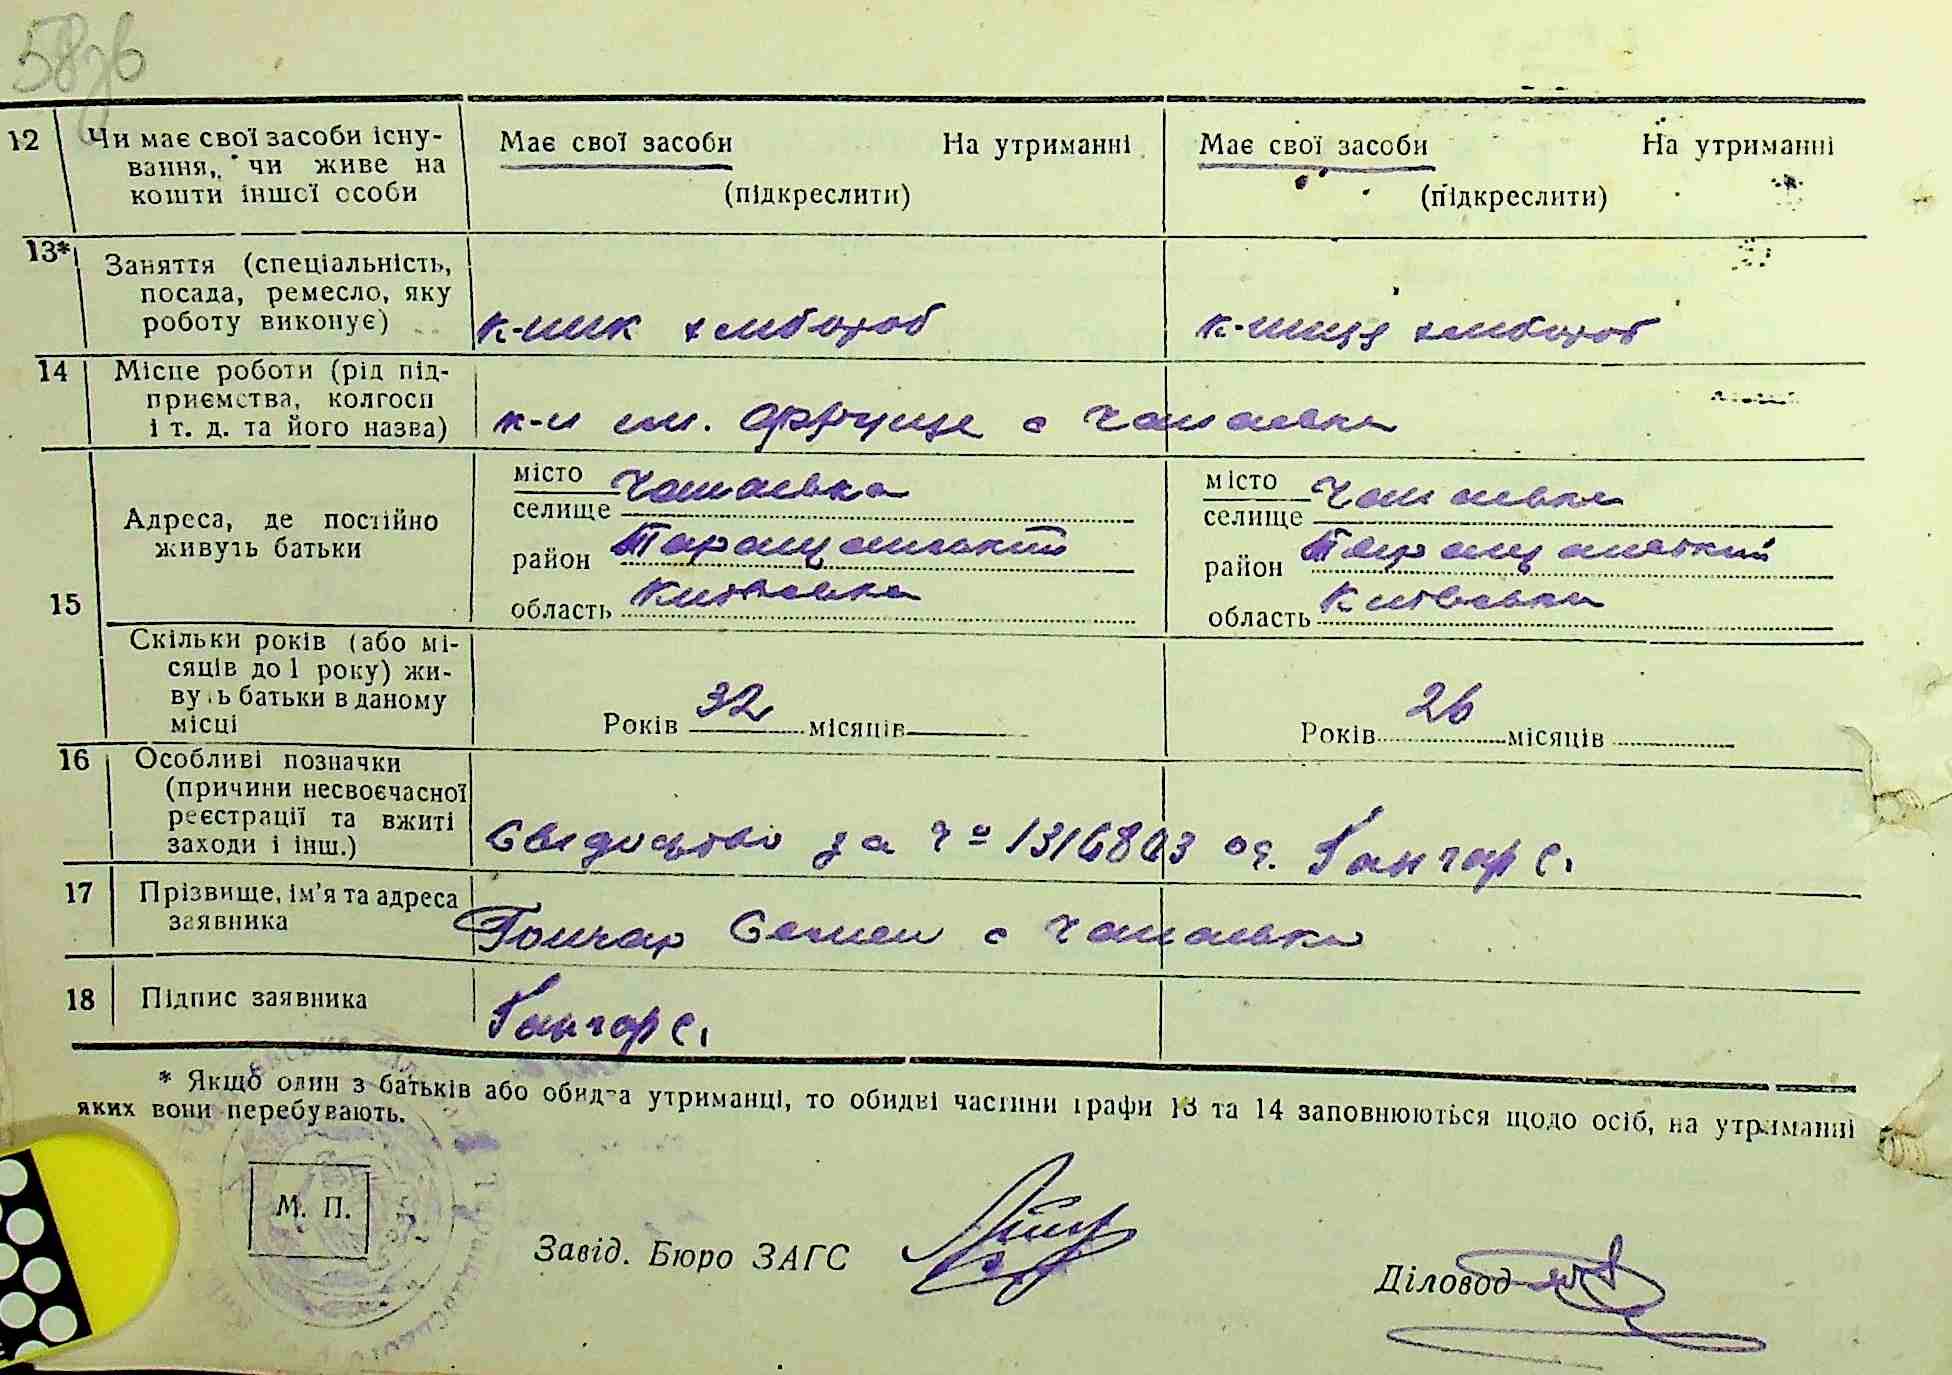 58зв
12 Чи має свої засоби існу-
вання, чи живе на
кошти іншої особи
Має свої засоби На утриманні
(підкреслити)
Має свої засоби На утриманні
(підкреслити)
13* Заняття (спеціальність,
посада, ремесло, яку
роботу виконує)
к-ник хлібороб
к-ниця хлібороб
14 Місце роботи (рід під-
приємства, колгосп
і т. д. та його назва)
к-п ім. Фрунзе с Чапаєвка
15 Адреса, де постійно
живуть батьки
місто Чапаєвка
селище
район Таращанський
область Київська
місто Чапаєвка
селище
район Таращанський
область Київська
Скільки років (або мі-
сяців до 1 року) жи-
вуть батьки в даному
місці
Років 32 місяців
Років 26 місяців
16 Особливі позначки
(причини несвоєчасної
реєстрації та вжиті
заходи і інш.)
Свідоцтво за Ч° 1316803 од. Гончар С.
17 Прізвище, ім'я та адреса
заявника
Гончар Семен с Чапаєвка
18 Підпис заявника
Гончар С.
* Якщо один з батьків або обидва утриманці, то обидві частини графи 13 та 14 заповнюються щодо осіб, на утриманні
яких вони перебувають.
М. П.
Завід. Бюро ЗАГС
Діловод